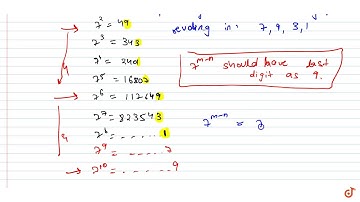 7² = 49
7³ = 343
7⁴ = 2401
7⁵ = 16807
7⁶ = 117649
7⁷ = 823543
7⁸ = ......1
7⁹ = ......7
7¹⁰ = ......9
4
4
revolving in: 7, 9, 3, 1
7ᵐ⁻ⁿ should have last
digit as 9.
7ᵐ⁻ⁿ =
doubtnut